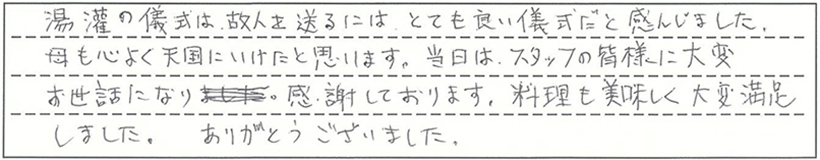 湯灌の儀式は、故人を送るには、とても良い儀式だと感んじました。
母も心よく天国にいけたと思います。当日は、スタッフの皆様に大変
お世話になり。感謝しております。料理も美味しく大変満足
しました。 ありがとうございました。